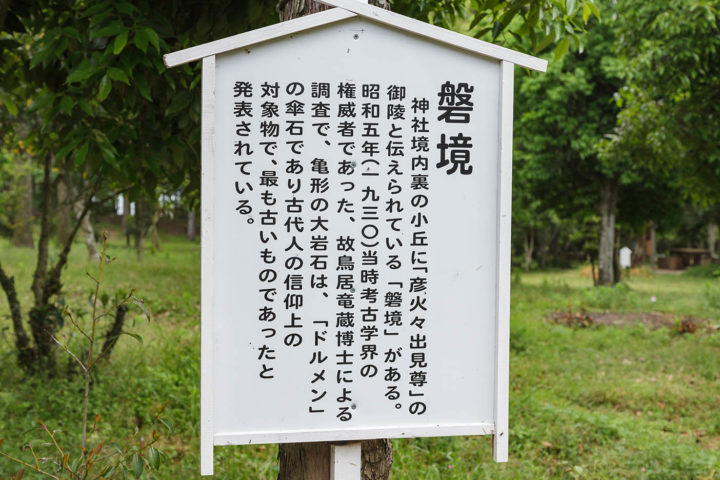 磐境
神社境内裏の小丘に「彦火々出見尊」の
御陵と伝えられている「磐境」がある。
昭和五年(一九三〇)当時考古学界の
権威者であった、故鳥居竜蔵博士による
調査で、亀形の大岩石は、「ドルメン」
の傘石であり古代人の信仰上の
対象物で、最も古いものであったと
発表されている。